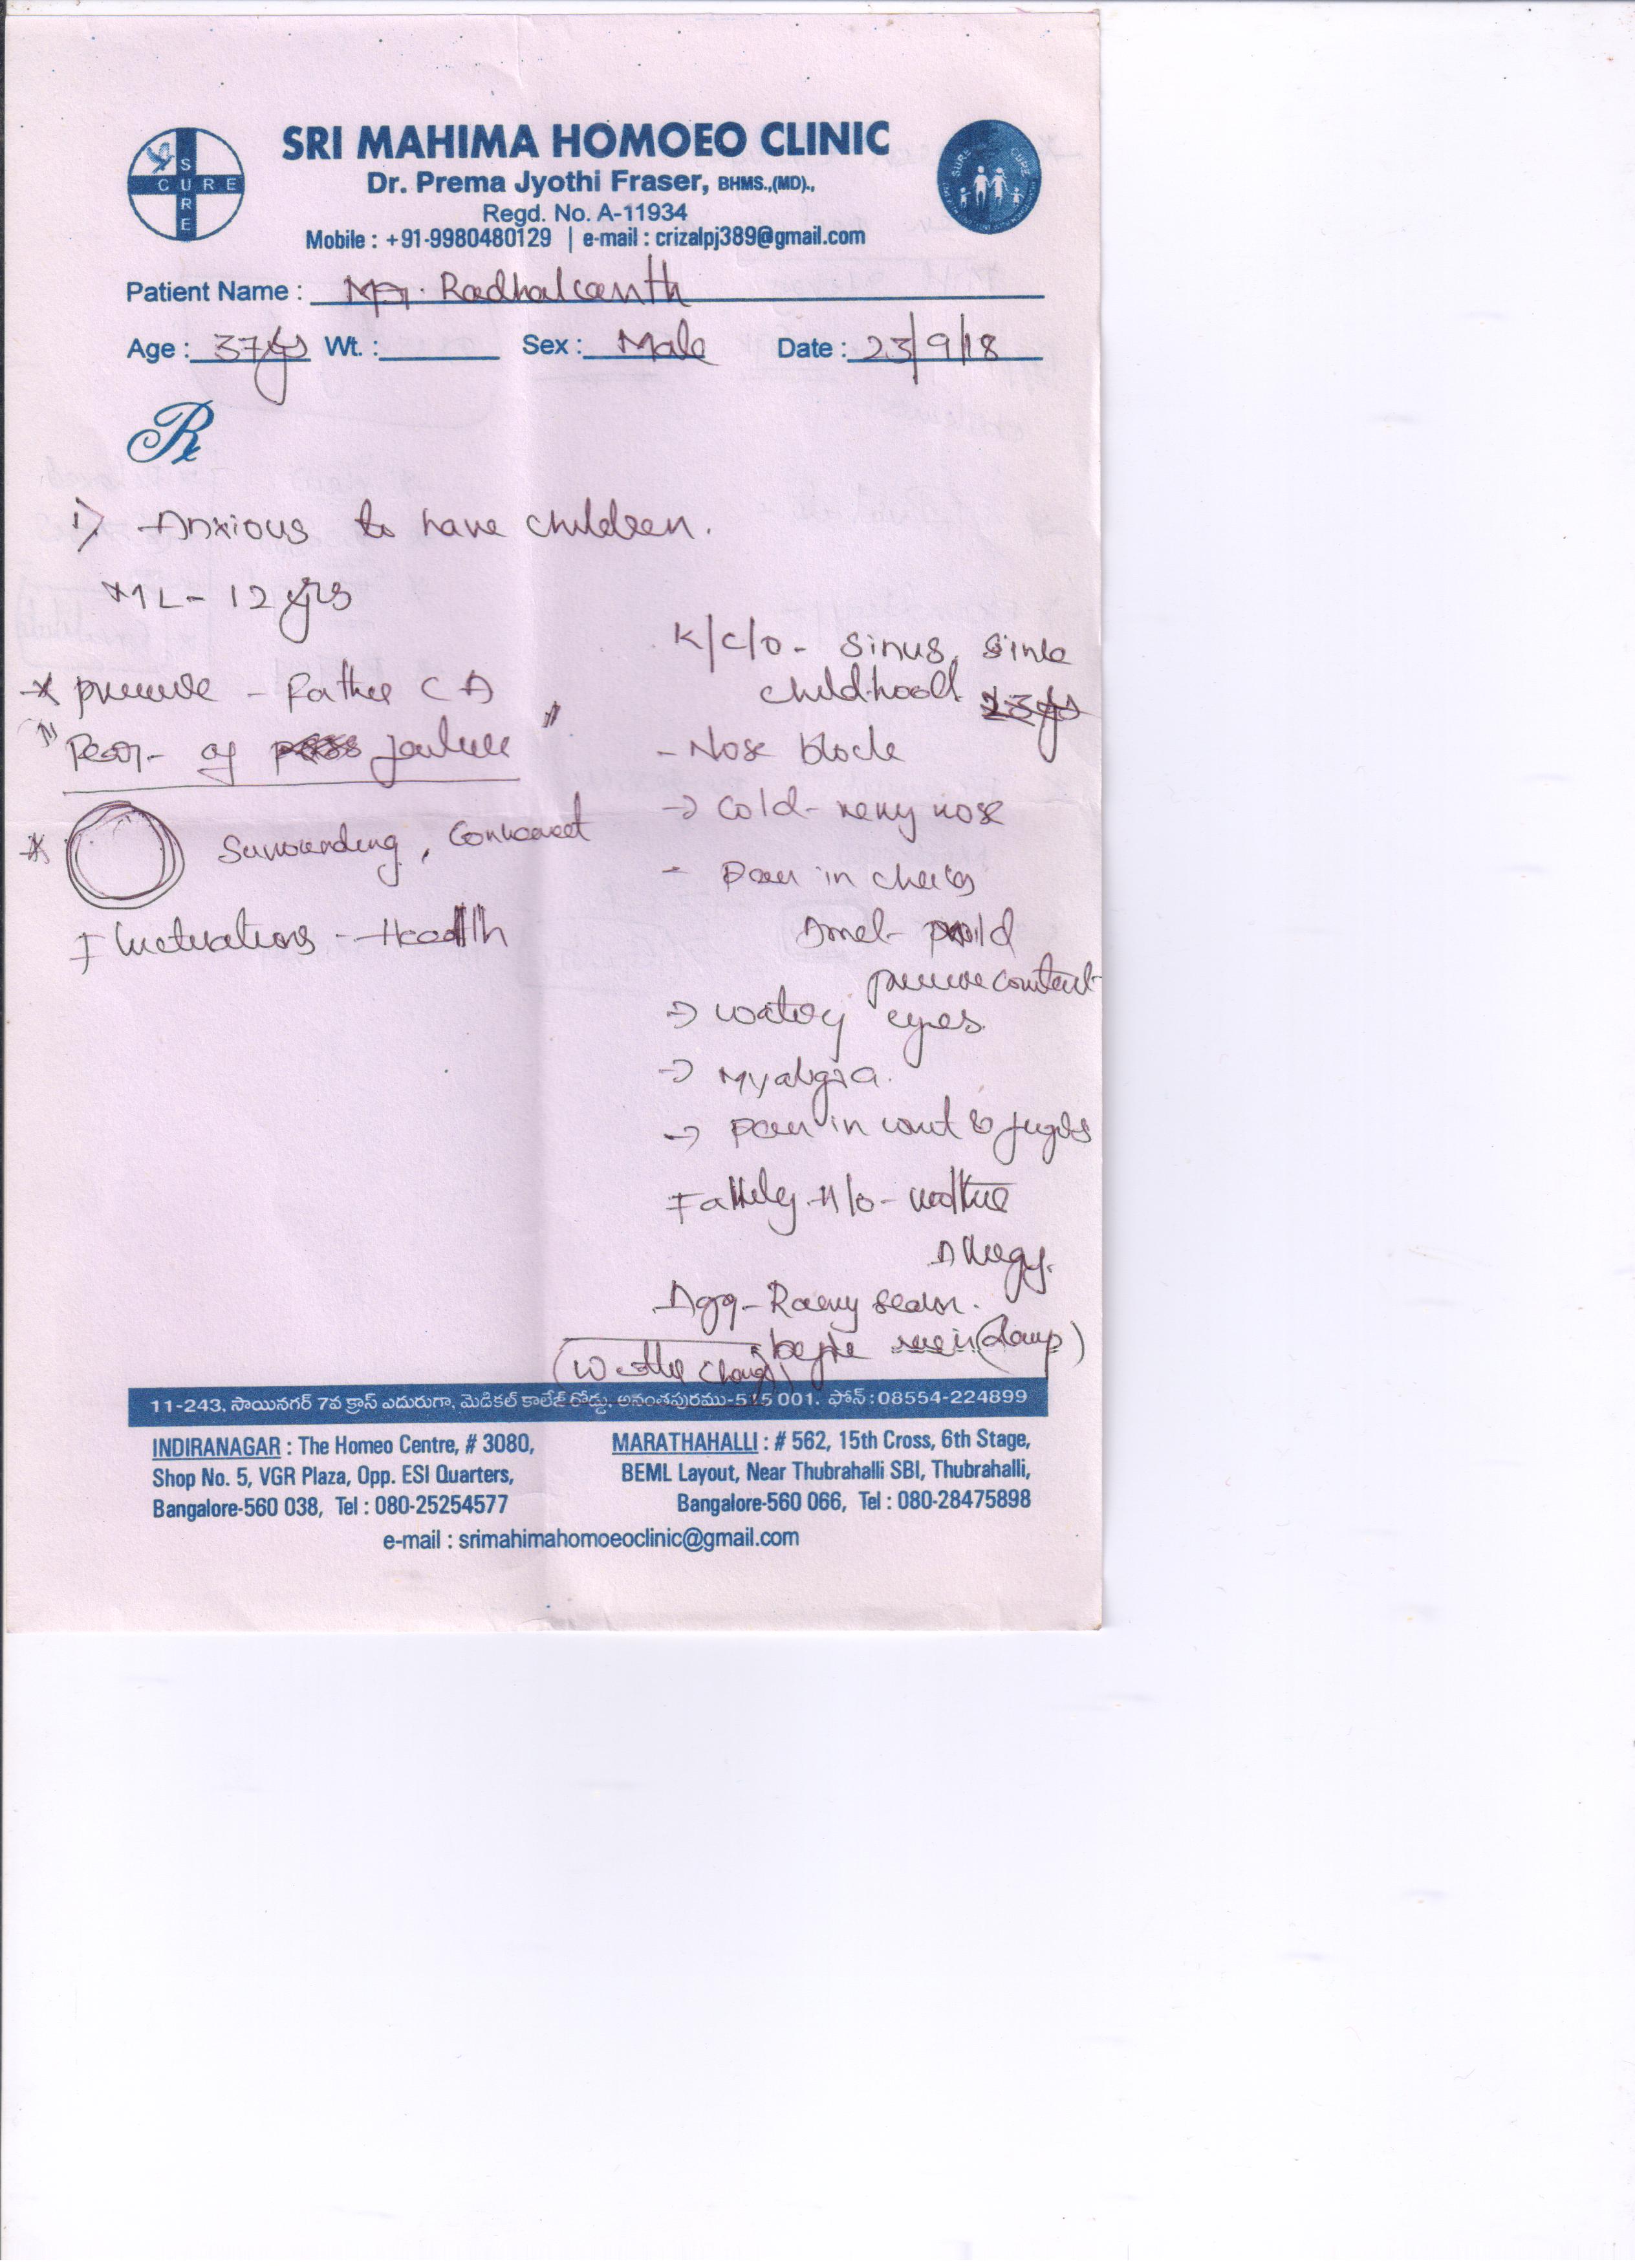 SURE
CURE
SURE CURE
SRI MAHIMA HOMOEO CLINIC
Dr. Prema Jyothi Fraser, BHMS.,(MD).,
Regd. No. A-11934
Mobile : +91-9980480129 | e-mail : crizalpj389@gmail.com
Patient Name : Mr. Radhakanth
Age : 37yrs Wt. : Sex : Male Date : 23/9/18
Rx
1) Anxious to have children.
ML - 12 yrs
- Father
Fear of failure
Surrounding,
Fluctuations - Health
K/c/o - Sinus, since
childhood
- Nose block
→ Cold - runny nose
- Pain in cheeks
→ watery eyes.
→ Myalgia.
→ Pain in &
Family H/o - mother
Allergy.
Agg - Rainy season.
before rain (damp)
(Weather change)
11-243, సాయినగర్ 7వ క్రాస్ ఎదురుగా, మెడికల్ కాలేజ్ రోడ్డు, అనంతపురము-515 001. ఫోన్ : 08554-224899
INDIRANAGAR : The Homeo Centre, # 3080,
Shop No. 5, VGR Plaza, Opp. ESI Quarters,
Bangalore-560 038, Tel : 080-25254577
MARATHAHALLI : # 562, 15th Cross, 6th Stage,
BEML Layout, Near Thubrahalli SBI, Thubrahalli,
Bangalore-560 066, Tel : 080-28475898
e-mail : srimahimahomoeoclinic@gmail.com